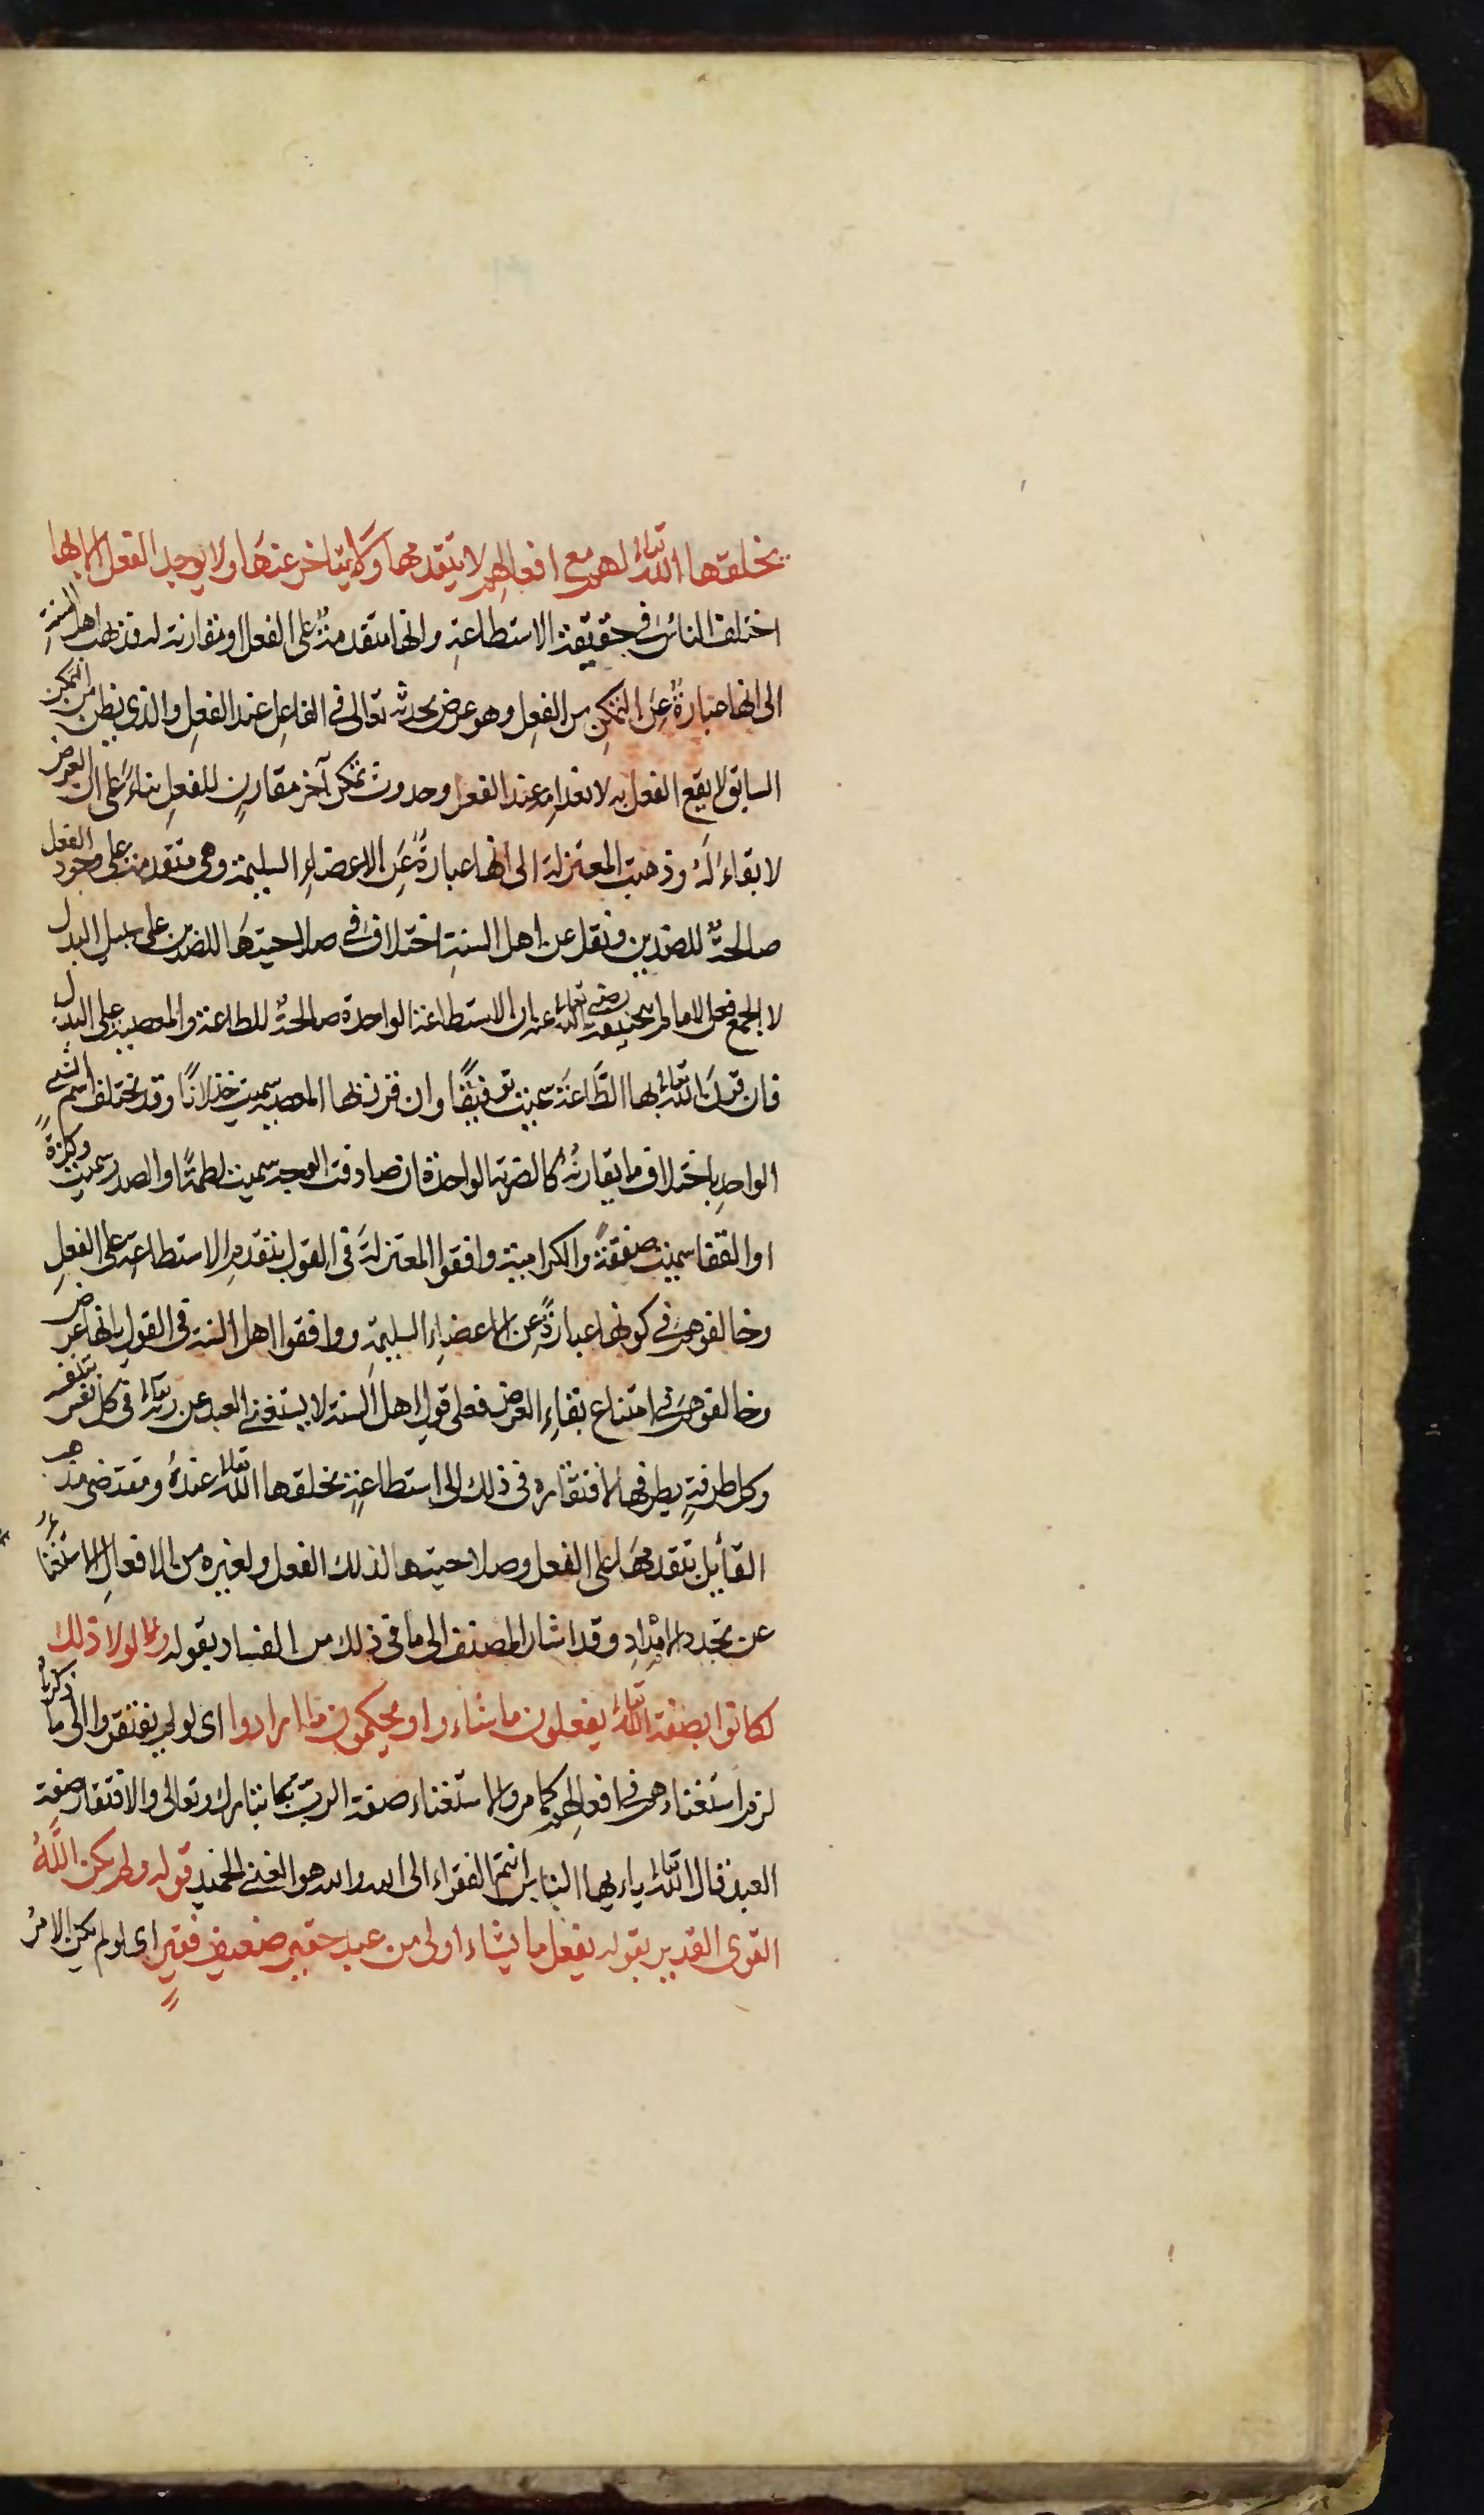 يخلقها الله تعالى لهم مع افعالهم لا يتقدمها ولا يتاخر عنها ولا يوجد الفعل الا بها
اختلف الناس في حقيقة الاستطاعة وانها متقدمة على الفعل او مقارنة له فذهب اهل السنة
الى انها عبارة عن التمكن من الفعل وهو عرض يحدثه تعالى في الفاعل عند الفعل والذي يظن من التمكن
السابق لا يقع الفعل به لانعدامه عند الفعل وحدوث تمكن آخر مقارن للفعل بناء على ان العرض
لا بقاء له وذهبت المعتزلة الى انها عبارة عن الاعضاء السليمة وهي متقدمة على وجود الفعل
صالحة للضدين ونقل عن اهل السنة اختلاف في صلاحيتها للضدين على سبيل البدل
لا الجمع فعن الامام ابي حنيفة رضي الله تعالى عنه ان الاستطاعة الواحدة صالحة للطاعة والمعصية على البدل
فان قرن الله تعالى بها الطاعة سميت توفيقًا وان قرن بها المعصية سميت خذلانًا وقد يختلف اسم الشيء
الواحد باختلاف ما يقارنه كالضربة الواحدة ان صادفت الوجه سميت لطمةً او الصدر سميت وكزةً
او القفا سميت صفقةً والكرامية وافقوا المعتزلة في القول بتقدم الاستطاعة على الفعل
وخالفوهم في كونها عبارة عن الاعضاء السليمة ووافقوا اهل السنة في القول بانها عرض
وخالفوهم في امتناع بقاء العرض فعلى قول اهل السنة لا يستغني العبد عن ربه تعالى في كل نفس يتنفسه
وكل طرفة يطرفها لافتقاره في ذلك الى استطاعة يخلقها الله تعالى عنده ومقتضى مذهب
القائل بتقدمها على الفعل وصلاحيتها لذلك الفعل ولغيره من الافعال الاستغناء
عن تجدد الامداد وقد اشار المصنف الى ما في ذلك من الفساد بقوله ولولا ذلك
لكانوا بصفة الله تعالى يفعلون ما شاءوا ويحكمون ما ارادوا اى لو لم يفتقروا الى ما ذكرنا
لزم استغناءهم في افعالهم كما مر والاستغناء صفة الرب تبارك وتعالى والافتقار صفة
العبد قال الله تعالى يا ايها الناس انتم الفقراء الى الله والله هو الغني الحميد قوله ولم يكن الله
القوى القدير بقوله يفعل ما يشاء اولى من عبد حقير ضعيف فقير اى لو لم يكن الامر